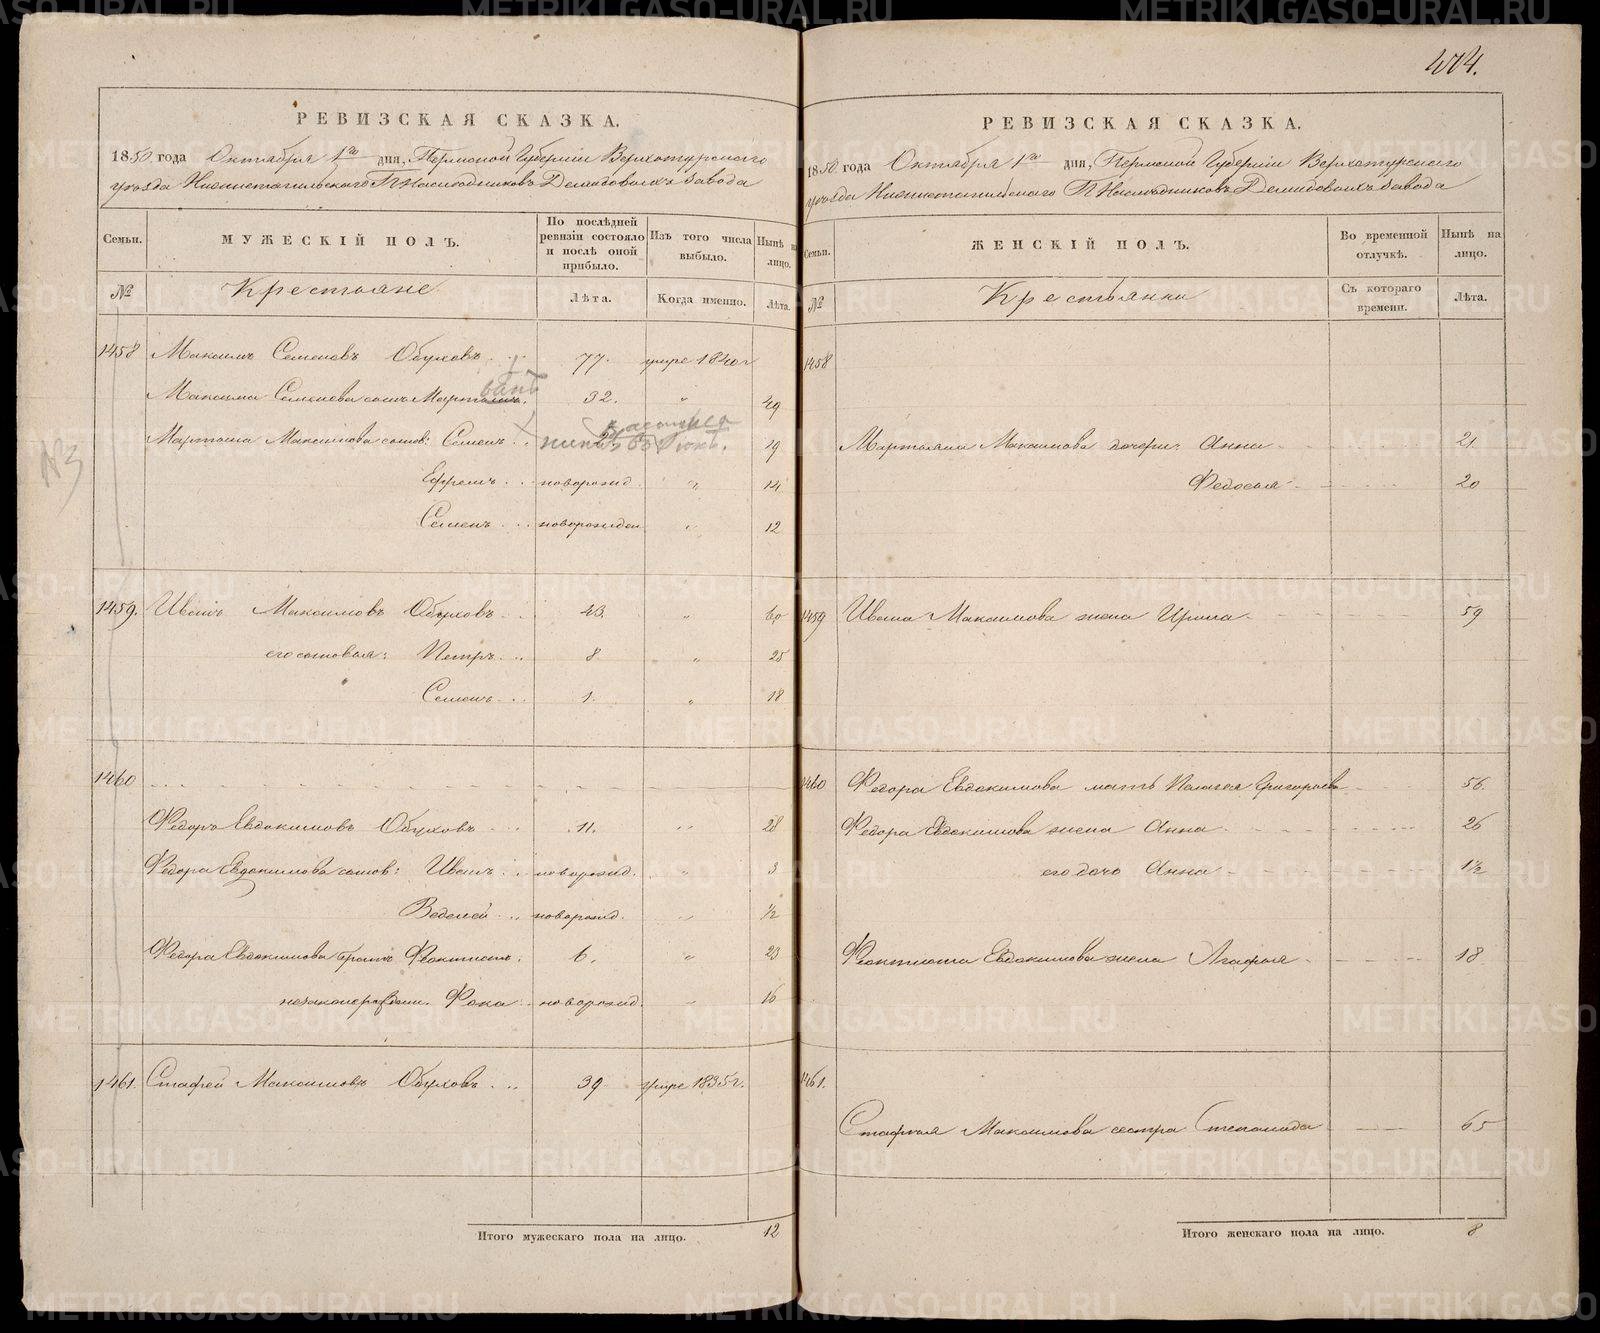 474.
РЕВИЗСКАЯ СКАЗКА.
1850 года Октября 1го дня, Пермской Губернiи Верхотурскаго
уѣзда Нижнетагильскаго П Наследниковъ Демидовыхъ завода
Семьи.
МУЖЕСКІЙ ПОЛЪ.
По послѣдней ревизіи состояло и послѣ оной прибыло.
Изъ того числа выбыло.
Нынѣ на лицо.
№
Крестьяне
Лѣта.
Когда именно.
Лѣта.
1458 Максимъ Семеновъ Обуховъ 77. умре 1840 г
Максима Семенова сынъ 32. " 49
Мартына Максимова сынов: Семенъ 19
Ефремъ новорожд " 14
Семенъ новорожден " 12
№3
1459. Иванъ Максимовъ Обуховъ 43. " 60
его сыновья: Петръ 8 " 25
Семенъ 1. " 18
1460
Федоръ Евдокимовъ Обуховъ 11. " 28
Федора Евдокимова сынов: Иванъ новорожд. " 3
Веденей новорожд. " 1/2
Федора Евдокимова братъ Феоктистъ. 6. " 23
незаконорожден. Фока новорожд. " 16
1461. Стафей Максимовъ Обуховъ 39 умре 1835 г.
Итого мужескаго пола на лицо. 12
РЕВИЗСКАЯ СКАЗКА.
1850 года Октября 1го дня, Пермской Губернiи Верхотурскаго
уѣзда Нижнетагильскаго П Наследниковъ Демидовыхъ завода
Семьи.
ЖЕНСКІЙ ПОЛЪ.
Во временной отлучкѣ.
Нынѣ на лицо.
№
Крестьянки
Съ котораго времени.
Лѣта.
1458
Мартына Максимова дочери: Анна 21.
Федосья 20
1459 Ивана Максимова жена Ирина 59
1460 Федора Евдокимова мать Пелагея Григорьева 56.
Федора Евдокимова жена Анна 26
его дочь Анна 1 1/2
Феоктиста Евдокимова жена Агафья 18
1461.
Стафея Максимова сестра Степанида 65
Итого женскаго пола на лицо. 8
METRIKI.GASO-URAL.RU